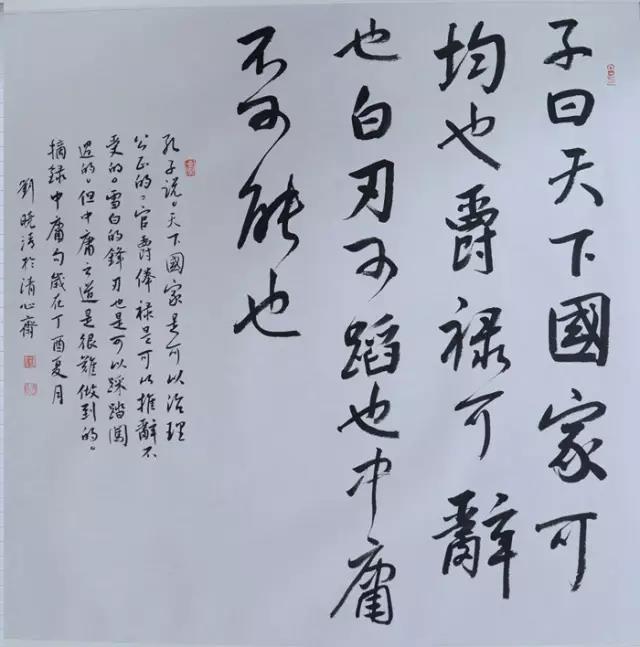 子曰天下國家可
均也爵禄可辭
也白刃可蹈也中庸
不可能也
孔子说。天下國家是可以治理
公正的，官爵俸禄是可以推辭不
受的。雪白的鋒刃也是可以踩踏闖
過的。但中庸之道是很難做到的。
摘録中庸句歲在丁酉夏月
劉曉涛於清心齋